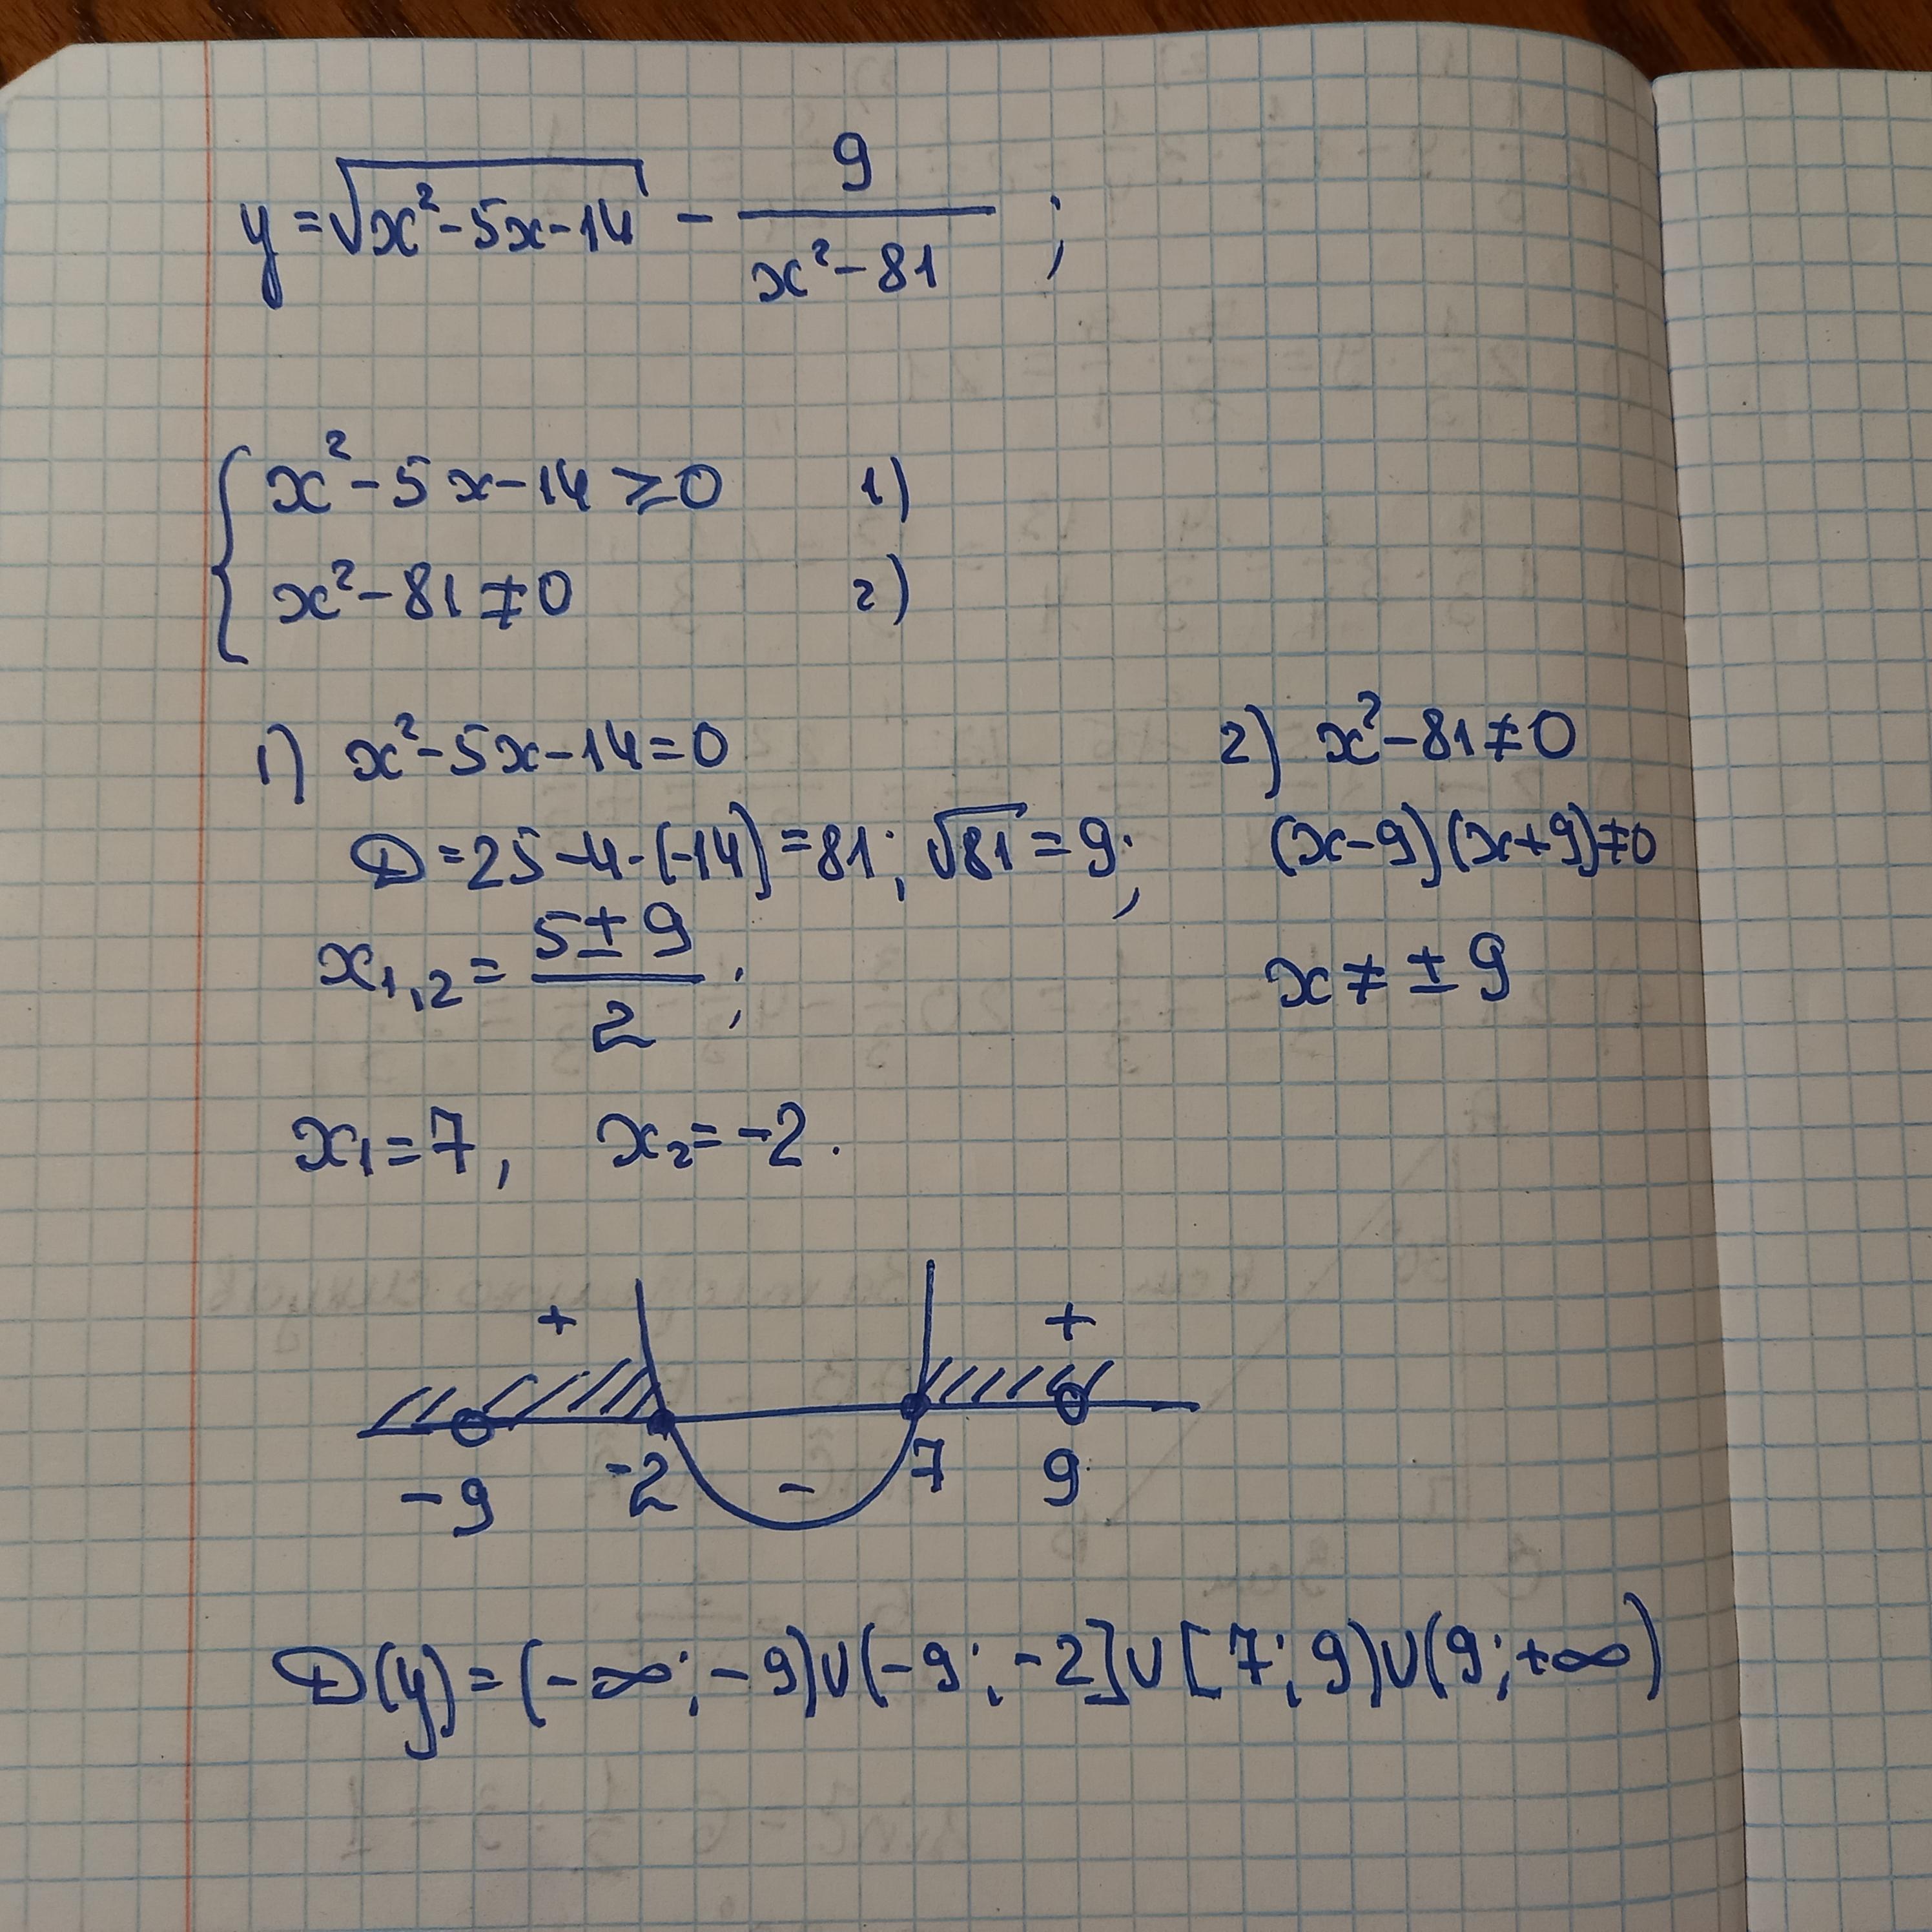 y = √(x² - 5x - 14) - 9/(x² - 81) ;
{ x² - 5x - 14 ≥ 0 1)
x² - 81 ≠ 0 2)
1) x² - 5x - 14 = 0
D = 25 - 4 · (-14) = 81; √81 = 9;
x₁,₂ = (5 ± 9)/2 ;
x₁ = 7, x₂ = -2.
2) x² - 81 ≠ 0
(x - 9)(x + 9) ≠ 0
x ≠ ± 9
+ +
-
-9 -2 7 9
D(y) = (-∞; -9)∪(-9; -2]∪[7; 9)∪(9; +∞)